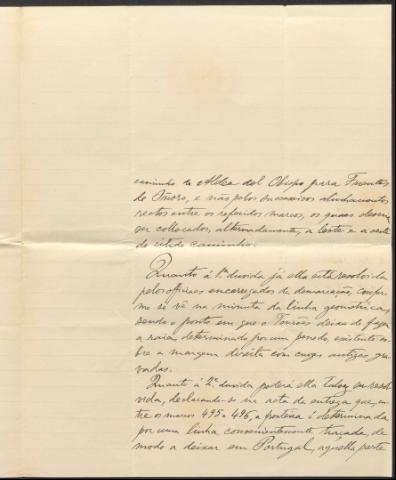 caminho de Aldea del Obispo para Fuentes
de Oñoro, e não pelos successivos alinhamentos
rectos entre os referidos marcos, os quaes devem
ser collocados, alternadamente, a leste e a oeste
do citado caminho.
Quanto á 1ª duvida já ella está resolvida
pelos officiaes encarregados da demarcação, confor-
me se vê na minuta da linha geometrica,
sendo o ponto em que o Tourões deixa de fazer
a raia, determinado por um penedo, existente so-
bre a margem direita com cruzes antigas gra-
vadas.
Quanto á 2ª duvida poderá ella talvez ser resol-
vida, declarando-se na acta de entrega que, en-
tre os marcos 495 e 496, a fronteira é determinada
por uma linha convenientemente traçada, de
modo a deixar em Portugal, aquella parte